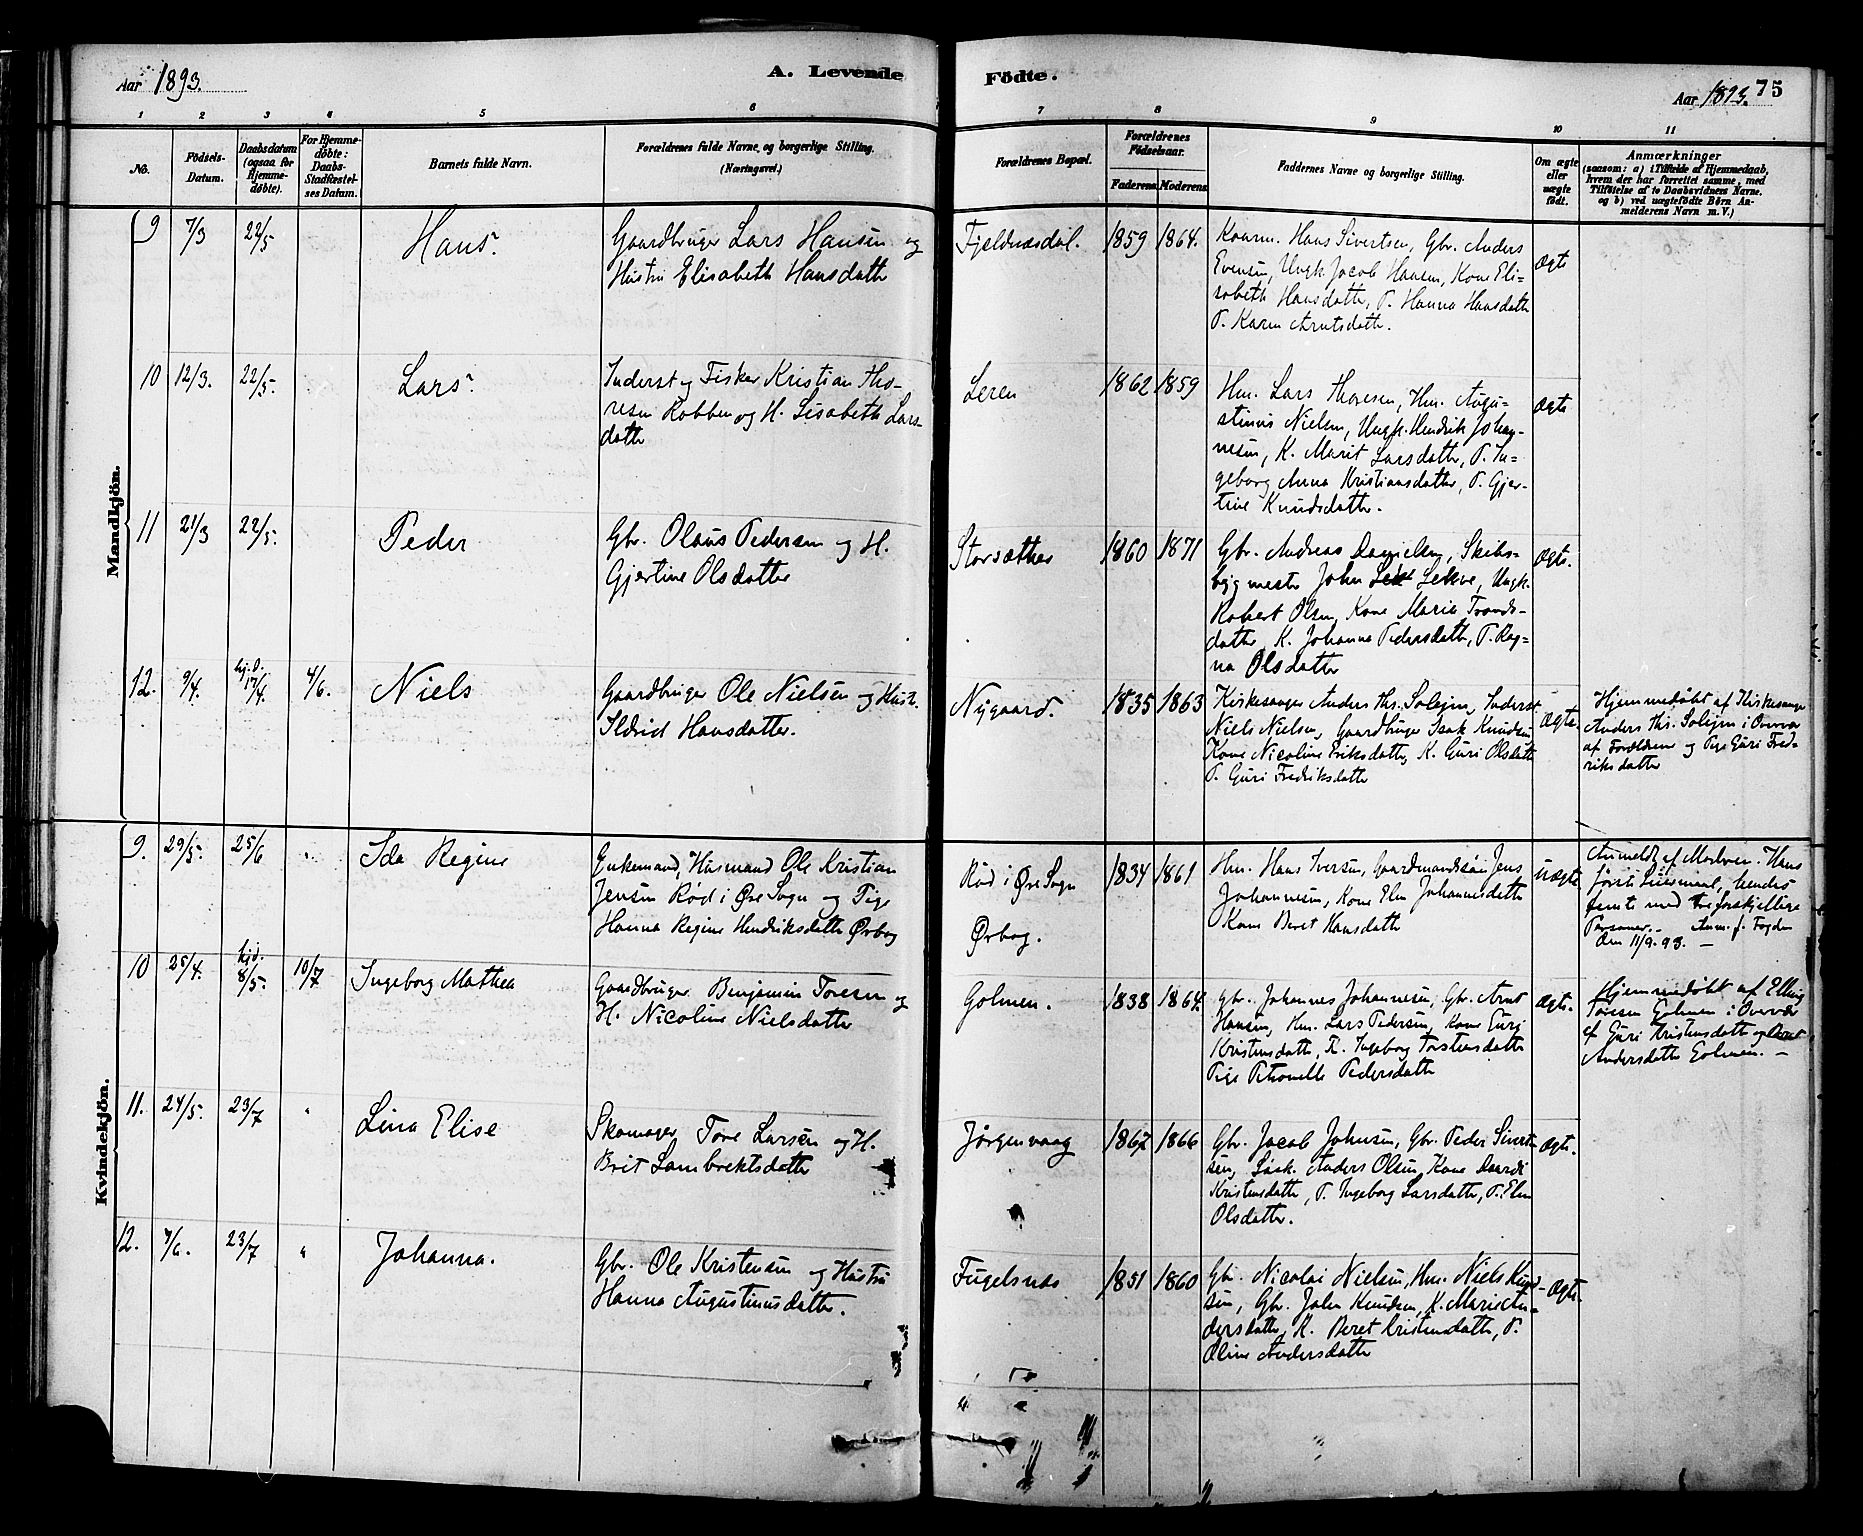 Aar 1893.
A. Levende Födte.
Aar 1893. 75
1 2 3 4 5 6 7 8 9 10 11
No.
Födsels-
Datum.
Daabsdatum
(ogsaa for
Hjemme-
døbte).
For Hjemme-
døbte:
Daabs-
Stadfæstel-
ses Datum.
Barnets fulde Navn.
Forældrenes fulde Navne, og borgerlige Stilling.
(Næringsvei.)
Forældrenes Bopæl.
Forældrenes
Födselsaar.
Faderens. Moderens.
Faddernes Navne og borgerlige Stilling.
Om ægte
eller
uægte
født.
Anmærkninger
(saasom: a) i Tilfælde af Hjemmedaab,
hvem der har forrettet samme, med
Tilføielse af to Daabsvidners Navne.
og b) ved uægtefødte Børn An-
melderens Navn m. V.)
Mandkjön.
9 7/3 22/5 Hans. Gaardbruger Lars Hansen og
Hustru Elisabeth Hansdatter
Fjeldnæsdal. 1859 1864.
Kaarm. Hans Sivertsen, Gbr. Anders
Evensen, Ungk. Jacob Hansen, Kone Eli-
sabeth Hansdatter, P. Hanna Hansdatter
P. Karen Arntsdatter.
Ægte
10 12/3. 22/5. Lars. Inderst og Fisker Kristian Tho-
resen Robben og H. Lisabeth Lars-
datter
Leren 1862 1859
Hm. Lars Thoresen, Hm. Augu-
stinus Nielsen, Ungk. Hendrik Johan-
nesen, K. Marit Larsdatter, P. In-
geborg Anna Kristiansdatter, P. Gjer-
tine Knudsdatter.
Ægte
11 21/3 22/5. Peder Gbr. Olaus Pedersen og H.
Gjertine Olsdatter
Storsæther 1860 1871
Gbr. Andreas Danielsen, Skibs-
bygmester John Lekve, Ungk.
Robert Olsen, Kone Marie Tronds-
datter, K. Johanna Pedersdatter, P. Rag-
na Olsdatter
Ægte.
12. 9/4. hj.d. 17/4. 4/6. Niels Gaardbruger Ole Nielsen og Hust.
Ildrid Hansdatter.
Nygaard. 1835 1863
Kirkesanger Anders Ths. Solejm, Inderst
Niels Nielsen, Gaardbruger Isak Knudsen
Kone Nicoline Eriksdatter, K. Guri Olsdatter
P. Guri Fredriksdatter
Ægte.
Hjemmedøbt af Kirkesanger
Anders Ths. Solejm i Overvær
af Forældrene og Pige Guri Fred-
riksdatter
Kvindekjön.
9. 29/5. 25/6 Ida Regine Enkemand, Husmand Ole Kristian
Jensen Rød i Øre Sogn og Pige
Hanna Regine Hendriksdatter Ørbog
Rød i Øre Sogn
Ørbog.
1834 1861
Hm. Hans Iversen, Gaardmandssøn Jens
Johannesen, Kone Elen Johannesdatter
Kone Beret Hansdatter
Uægte
Anmeldt af Moderen. Hans
første Leiermaal, hendes
femte med tre forskjellige
Personer. Anm. f. Fogden
den 11/9. 93. —
10 25/4. hjd. 8/5. 10/7 Ingeborg Mathea Gaardbruger Benjamin Toresen og
H. Nicoline Nielsdatter
Golmen. 1838 1864.
Gbr. Johannes Johannesen, Gbr. Arnt
Hansen, Hm. Lars Pedersen, Kone Guri
Kristensdatter, K. Ingeborg Torstensdatter
Pige Petronelle Pedersdatter
Ægte.
Hjemmedøbt af Elling
Toresen Golmen i Overvær
af Guri Kristensdatter og Beret
Andersdatter Golmen. —
11. 24/5. 23/7 " Lina Elise Skomager Tore Larsen og H.
Brit Lambrektsdatter
Jørgenvaag 1867 1866
Gbr. Jacob Johnsen, Gbr. Peder Sivert-
sen, Anders Olsen, Kone
Kristensdatter, P. Ingeborg Larsdatter, P. Elen
Olsdatter.
Ægte.
12. 7/6. 23/7 " Johanna. Gbr. Ole Kristensen og Hustru
Hanna Augustinusdatter.
Fugelsnæs 1851 1860
Gbr. Nicolai Nielsen, Hm. Niels Knud-
sen, Gbr. John Knudsen, K. Marie An-
dersdatter, K. Beret Kristensdatter, P.
Oline Andersdatter
Ægte.